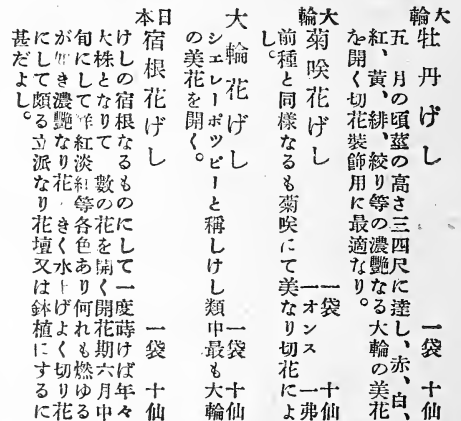 大輪 牡丹げし 一袋 十仙
五 月の頃莖の高さ三四尺に達し、赤、白、
紅、黃、緋、絞り等の濃艷なる大輪の美花
を開く切花裝飾用に最適なり。
大輪 菊咲花げし 一袋 十仙
一オンス 一弗
前種と同樣なるも菊咲にて美なり切花によ
し。
大輪花げし 一袋 十仙
シエレーポツピーと稱しけし類中最も大輪
の美花を開く。
日本 宿根花げし 一袋 十仙
けしの宿根なるものにして一度蒔けば年々
大株となりて 數の花を開く開花期六月中
旬にして 紅淡紅等各色あり何れも燃ゆる
が如き濃艷なり花 きく水 げよく切り花
にして頗る立派なり花壇又は鉢植にするに
甚だよし。